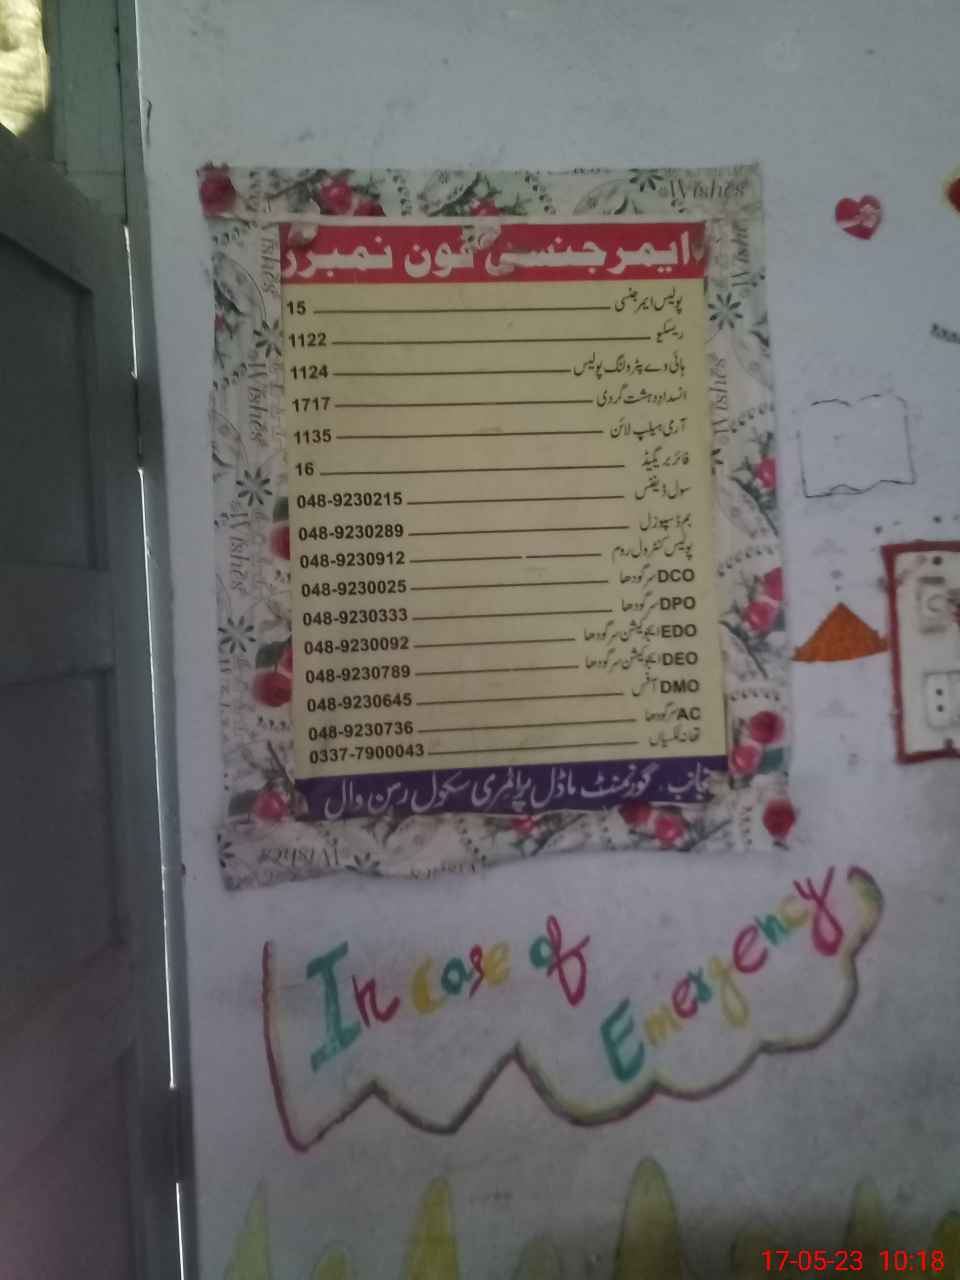 Wishes
ایمرجنسی فون نمبرز
پولیس ایمرجنسی 15
ریسکیو 1122
ہائی وے پٹرولنگ پولیس 1124
انسداد دہشت گردی 1717
آرمی ہیلپ لائن 1135
فائر بریگیڈ 16
سول ڈیفنس 048-9230215
بم ڈسپوزل 048-9230289
پولیس کنٹرول روم 048-9230912
DCO سرگودھا 048-9230025
DPO سرگودھا 048-9230333
EDO ایجوکیشن سرگودھا 048-9230092
DEO ایجوکیشن سرگودھا 048-9230789
DMO آفس 048-9230645
AC سرگودھا 048-9230736
تھانہ 0337-7900043
منجانب۔ گورنمنٹ ماڈل پرائمری سکول وال
Wishes
Wishes
Wishes
Wishes
Wishes
In case of
Emergency
17-05-23 10:18